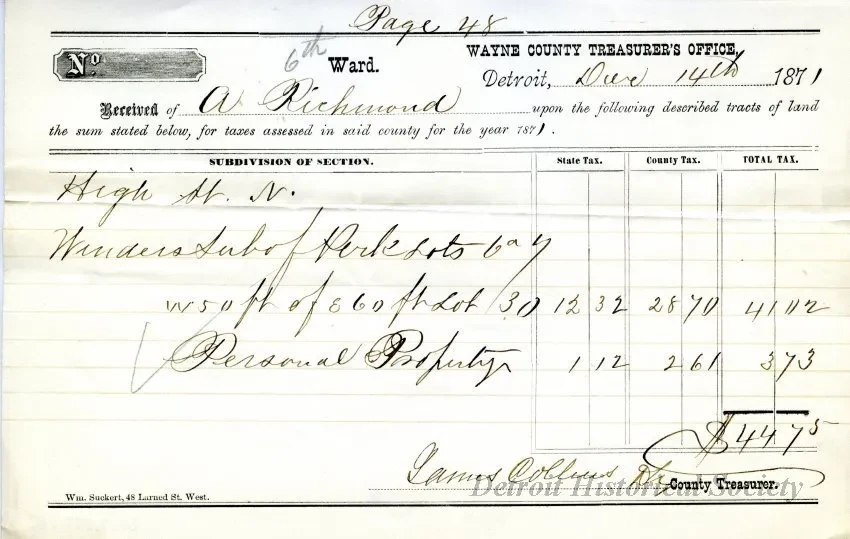 Page 48
No. 6th Ward. WAYNE COUNTY TREASURER'S OFFICE,
Detroit, Dec 14th 1871
Received of A Richmond upon the following described tracts of land
the sum stated below, for taxes assessed in said county for the year 1871.
SUBDIVISION OF SECTION. State Tax. County Tax. TOTAL TAX.
High St. N.
Winders Sub of Park Lots 6 a 7
W 50 ft of E 60 ft Lot 30 12 32 28 70 41 02
Personal Property 1 12 2 61 3 73
$44 75
James Collins Dy County Treasurer.
Wm. Suckert, 48 Larned St. West.
Detroit Historical Society